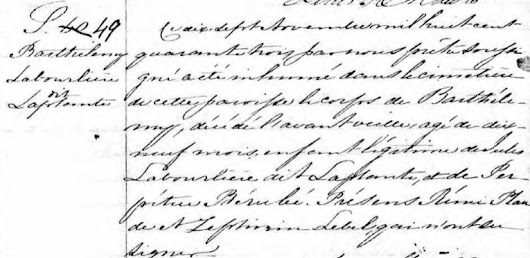 S. 49
Barthélemy
Labourlière
dit
Laplante
Le dix sept novembre mil huit cent
quarante trois par nous prêtre soussi
gné a été inhumé dans le cimetière
de cette paroisse le corps de Barthéle
my, décédé l'avant veille, agé de dix
neuf mois, enfant légitime de Jules
Labourlière dit Laplante, et de Per
pétue Bérubé. Présens Rémi Plan
de et Zephirin Lebel, qui n'ont su
signer